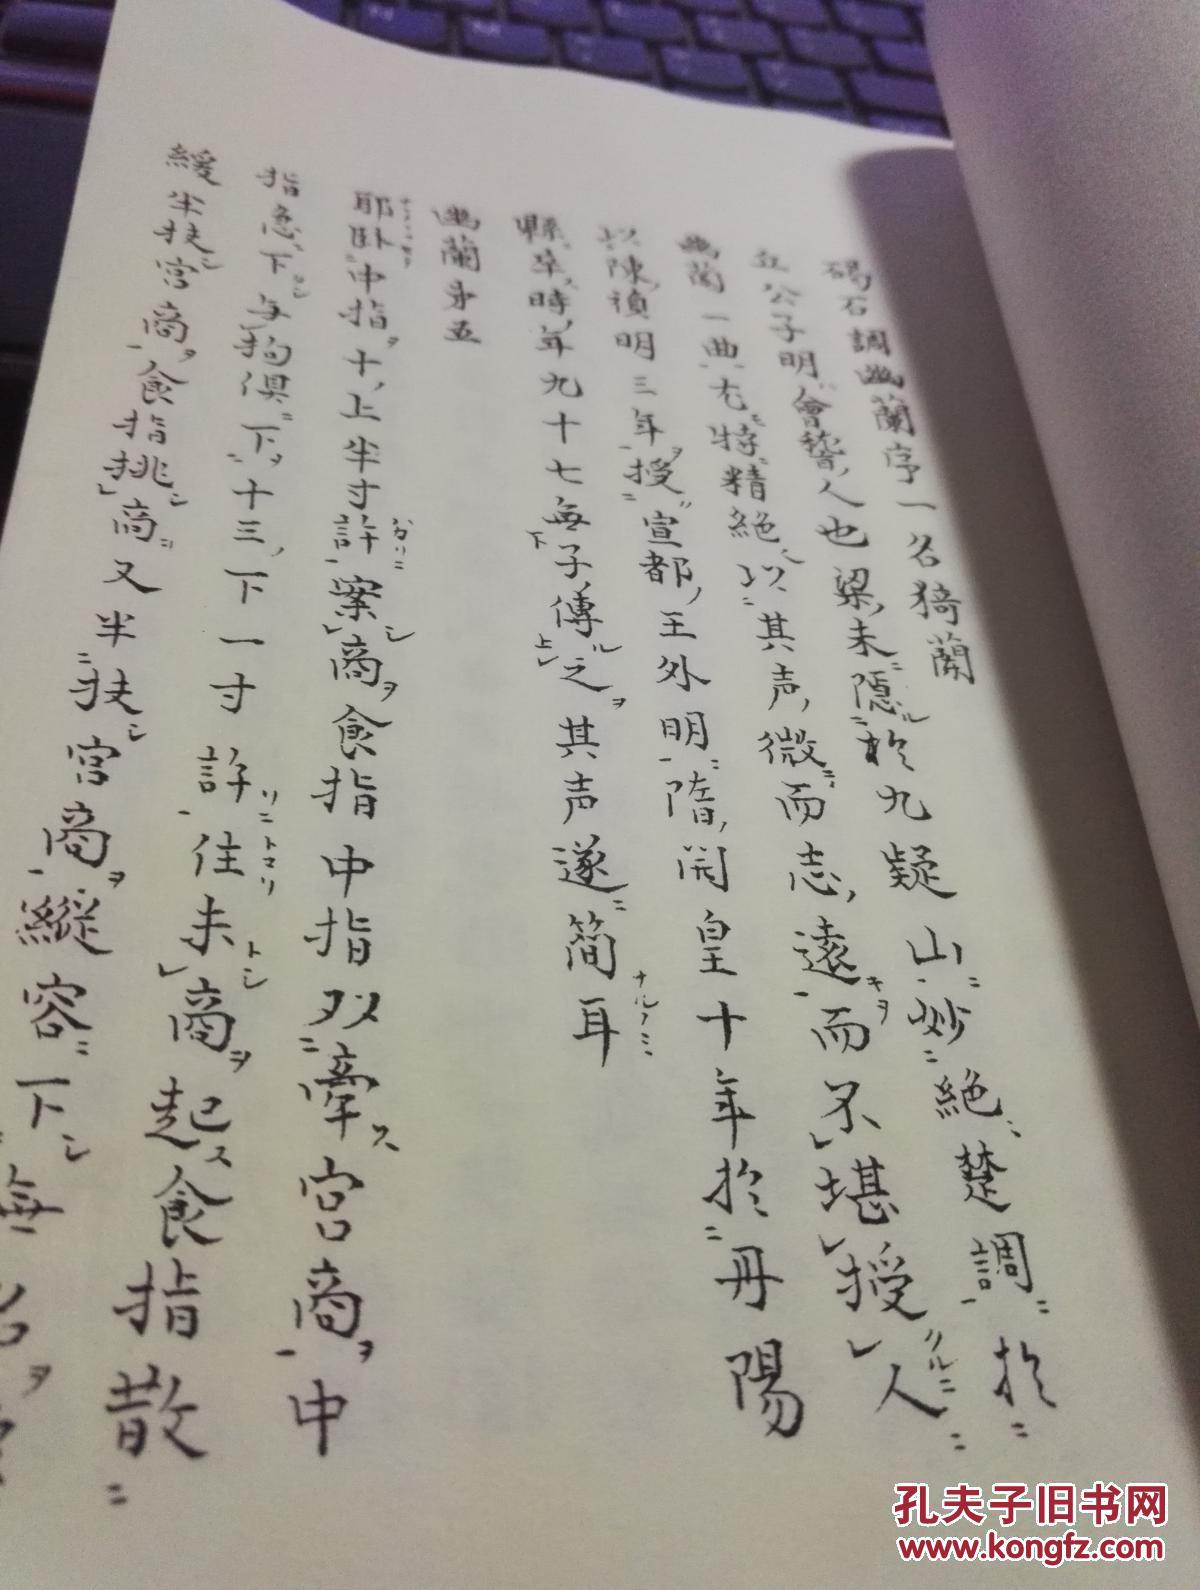 碣石調幽蘭序一名猗蘭
丘公子明會稽人也梁末隠於九疑山妙絶楚調於
幽蘭一曲尤特精絶以其声微而志遠而不堪授人
以陳禎明三年授宣都王外明隋開皇十年於丹陽
縣卒時年九十七無子傳之其声遂簡耳
幽蘭弟五
耶卧中指十上半寸許案商食指中指双牽宮商中
指急下与拘俱下十三下一寸許住末商起食指散
緩半扶宮商食指挑商又半扶宮商縱容下無
孔夫子旧书网
www.kongfz.com